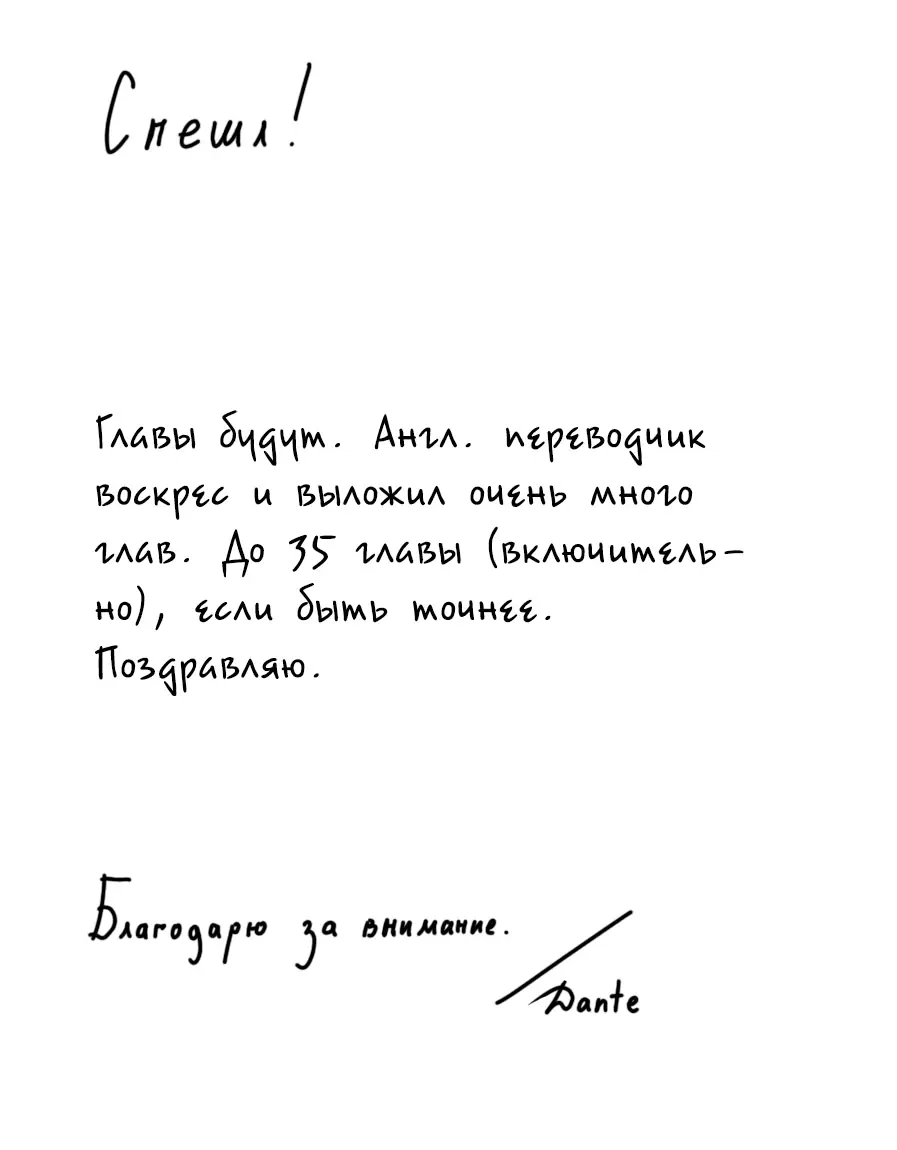 Спешл!
Главы будут. Англ. переводчик
воскрес и выложил очень много
глав. До 35 главы (включитель-
но), если быть точнее.
Поздравляю.
Благодарю за внимание.
Dante